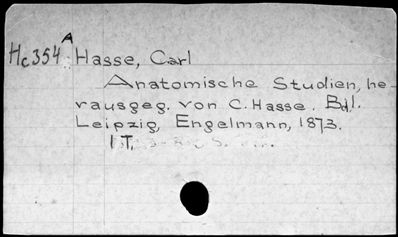 Hc354A Hasse, Carl
Anatomische Studien, he-
rausgeg. von C. Hasse. Bd I.
Leipzig, Engelmann, 1873.
1 T.